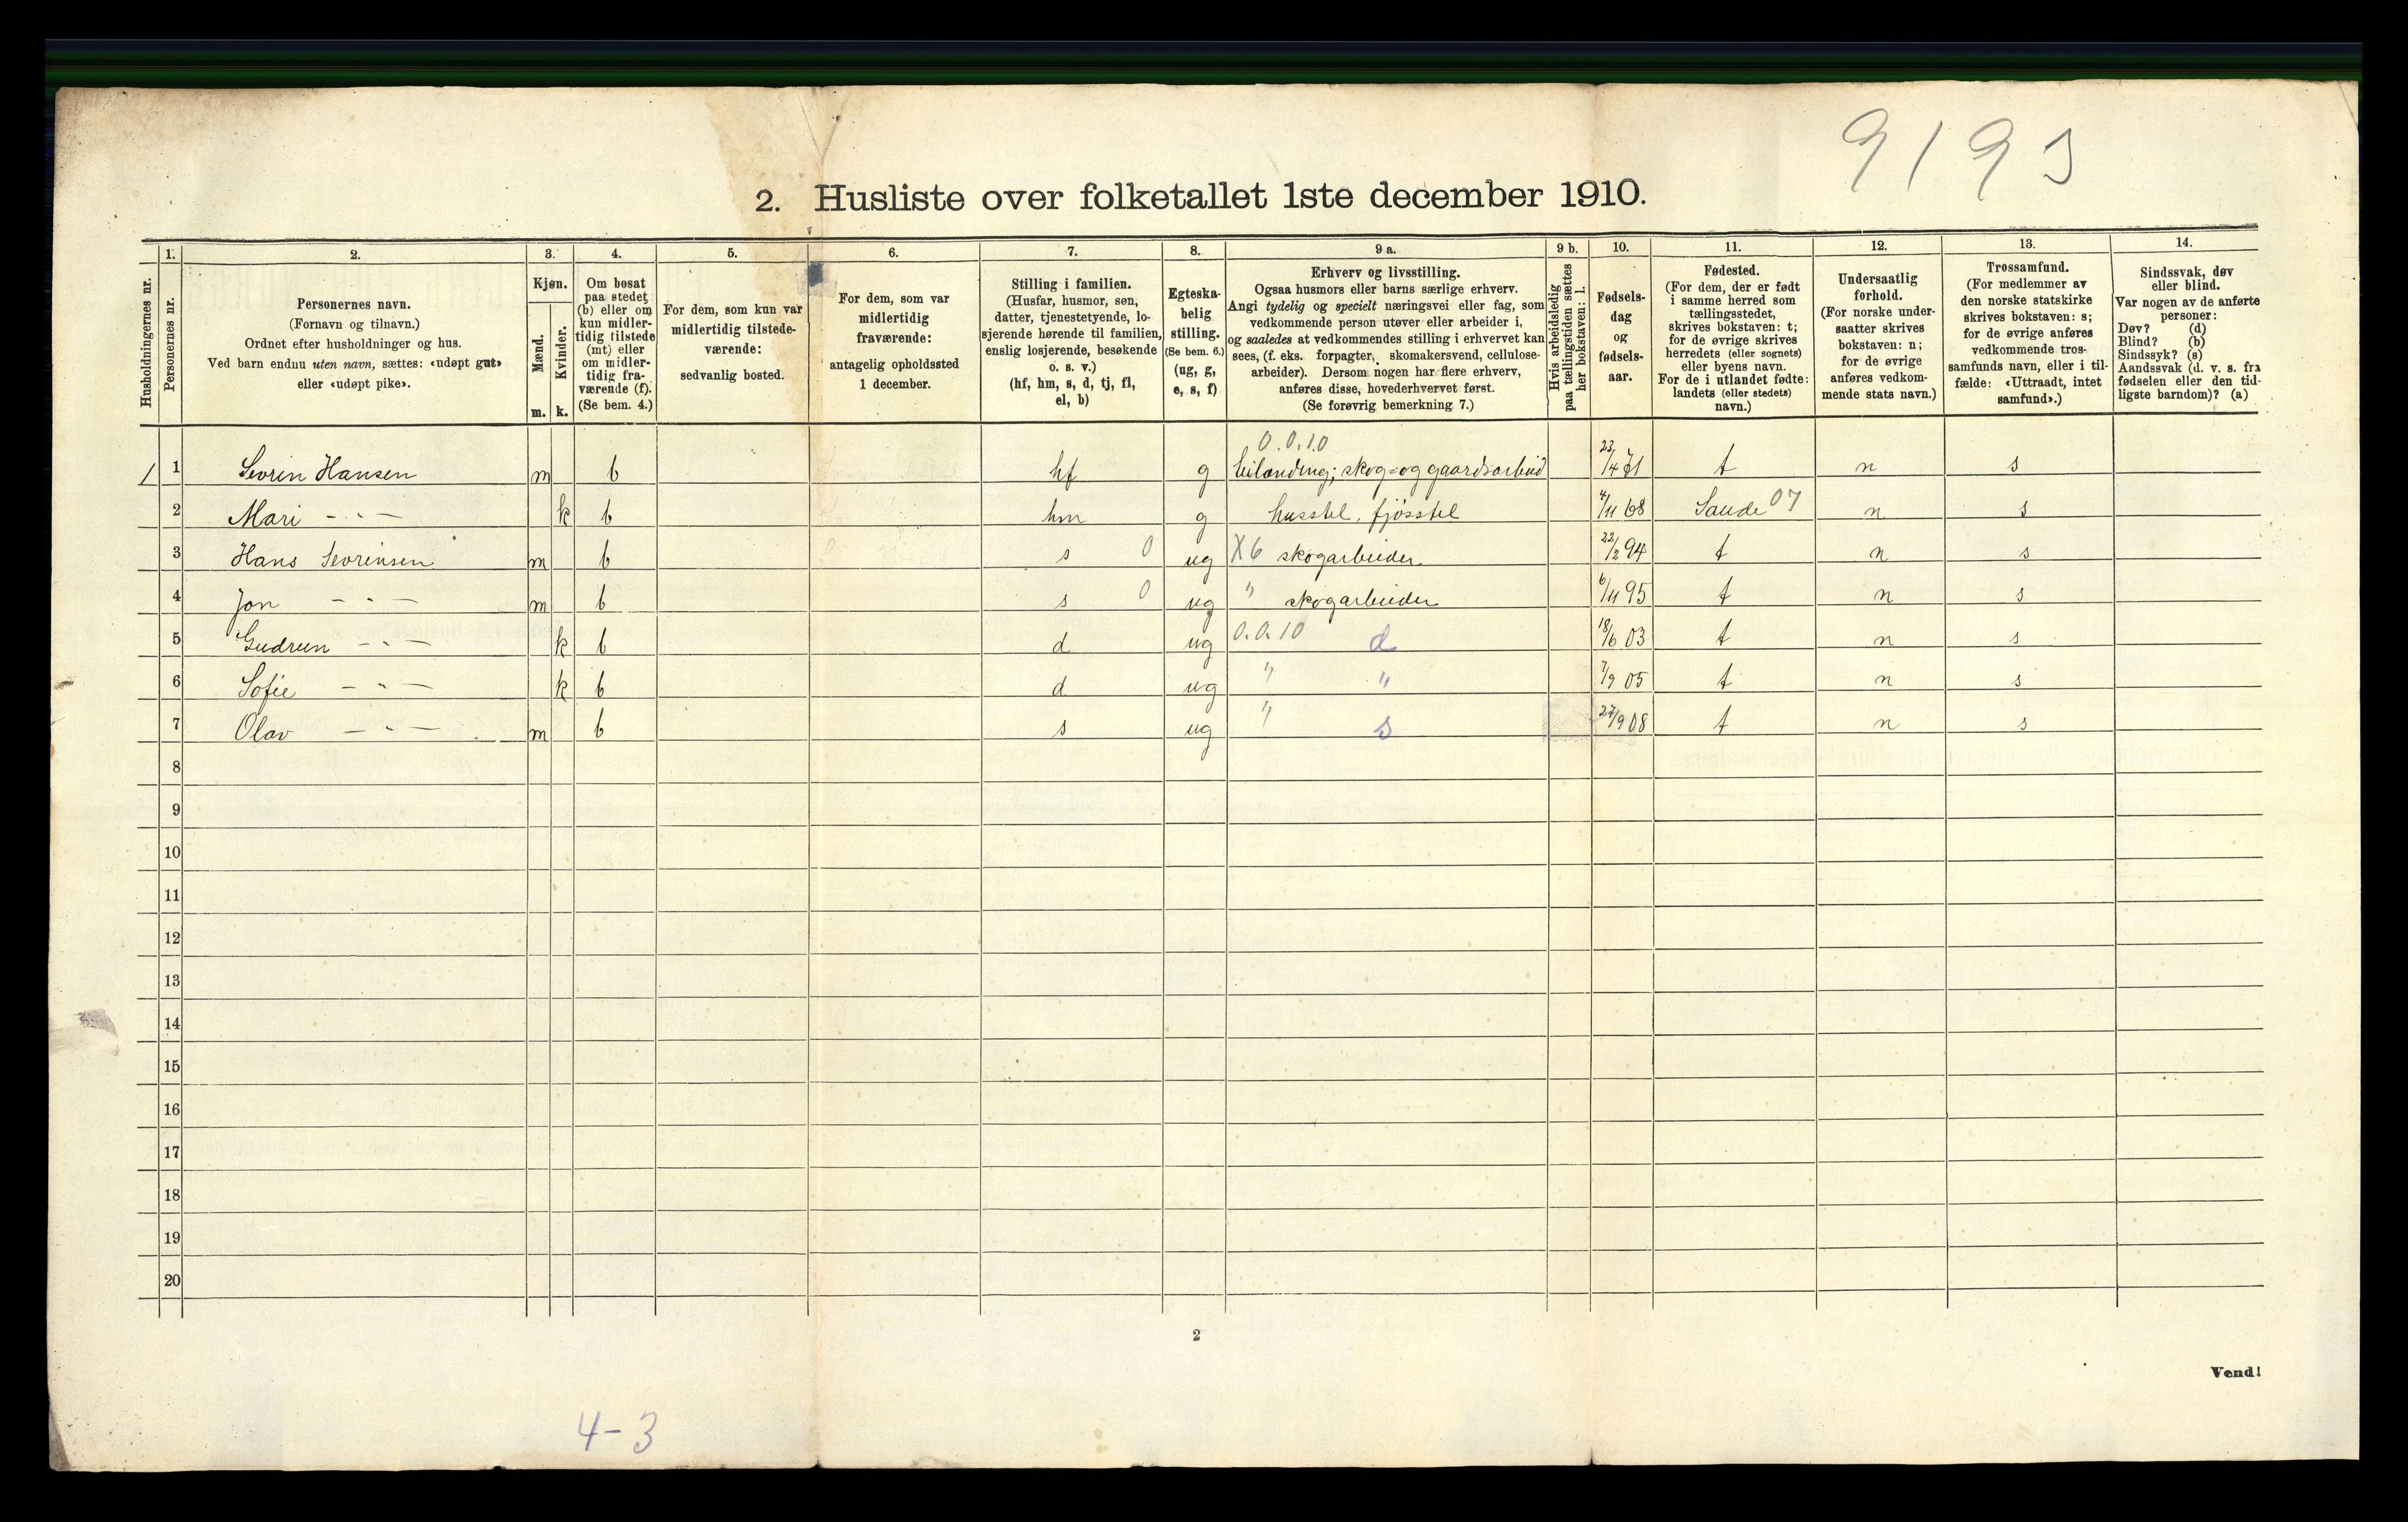 9193
2. Husliste over folketallet 1ste december 1910.
Husholdningernes nr.
1.
Personernes nr.
2.
Personernes navn.
(Fornavn og tilnavn.)
Ordnet efter husholdninger og hus.
Ved barn endnu uten navn, sættes: «udøpt gut»
eller «udøpt pike».
3.
Kjøn.
Mænd.
m.
Kvinder.
k.
4.
Om bosat
paa stedet
(b) eller om
kun midler-
tidig tilstede
(mt) eller
om midler-
tidig fra-
værende (f).
(Se bem. 4.)
5.
For dem, som kun var
midlertidig tilstede-
værende:
sedvanlig bosted.
6.
For dem, som var
midlertidig
fraværende:
antagelig opholdssted
1 december.
7.
Stilling i familien.
(Husfar, husmor, søn,
datter, tjenestetyende, lo-
sjerende hørende til familien,
enslig losjerende, besøkende
o. s. v.)
(hf, hm, s, d, tj, fl,
el, b)
8.
Egteska-
belig
stilling.
(Se bem. 6.)
(ug, g,
e, s, f)
9 a.
Erhverv og livsstilling.
Ogsaa husmors eller barns særlige erhverv.
Angi tydelig og specielt næringsvei eller fag, som
vedkommende person utøver eller arbeider i,
og saaledes at vedkommendes stilling i erhvervet kan
sees, (f. eks. forpagter, skomakersvend, cellulose-
arbeider). Dersom nogen har flere erhverv,
anføres disse, hovederhvervet først.
(Se forøvrig bemerkning 7.)
9 b.
Hvis arbeidsledig
paa tællingstiden sættes
her bokstaven: l.
10.
Fødsels-
dag
og
fødsels-
aar.
11.
Fødested.
(For dem, der er født
i samme herred som
tællingsstedet,
skrives bokstaven: t;
for de øvrige skrives
herredets (eller sognets)
eller byens navn.
For de i utlandet fødte:
landets (eller stedets)
navn.)
12.
Undersaatlig
forhold.
(For norske under-
saatter skrives
bokstaven: n;
for de øvrige
anføres vedkom-
mende stats navn.)
13.
Trossamfund.
(For medlemmer av
den norske statskirke
skrives bokstaven: s;
for de øvrige anføres
vedkommende tros-
samfunds navn, eller i til-
fælde: «Uttraadt, intet
samfund».)
14.
Sindssvak, døv
eller blind.
Var nogen av de anførte
personer:
Døv? (d)
Blind? (b)
Sindssyk? (s)
Aandssvak (d. v. s. fra
fødselen eller den tid-
ligste barndom)? (a)
0.0.10
1 1 Sevrin Hansen m b hf g leilænding; skog- og gaardsarbeid 23/4 71 t n s
2 Mari - " - k b hm g husstel, fjøsstel 4/11 68 Saude 07 n s
3 Hans Sevrinsen m b s 0 ug X6 skogarbeider 22/2 94 t n s
4 Jon - " - m b s 0 ug " skogarbeider 6/11 95 t n s
5 Gudrun - " - k b d ug 0.0.10 d 18/6 03 t n s
6 Sofie - " - k b d ug " " 7/9 05 t n s
7 Olav - " - m b s ug " s 27/9 08 t n s
8
9
10
11
12
13
14
15
16
17
18
19
20
2
Vend!
4-3